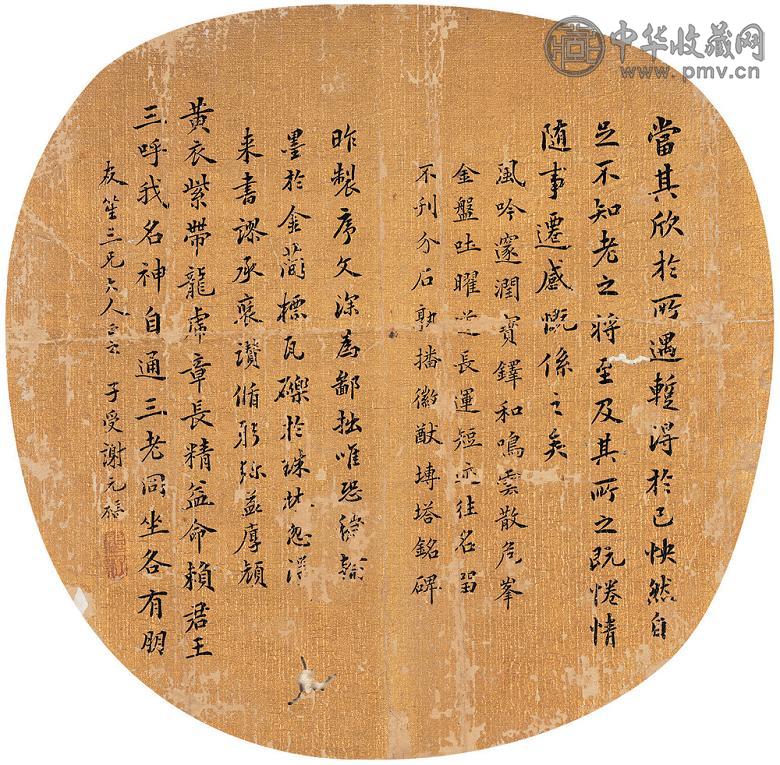 中华收藏网
www.pmv.cn
當其欣於所遇蹔得於己怏然自
足不知老之將至及其所之既惓情
随事遷感慨係之矣
風吟邃澗寶鐸和鳴雲散危峯
金盤吐曜道長運短迹往名留
不刊分石孰播徽猷塼塔銘碑
昨製序文深為鄙拙唯恐
墨於金簡標瓦礫於珠林忽得
来書謬承褒讃循躬弥益厚顔
黃衣紫帶龍虎章長精益命賴君王
三呼我名神自通三老同坐各有朋
友笙三兄大人正之 子受謝元